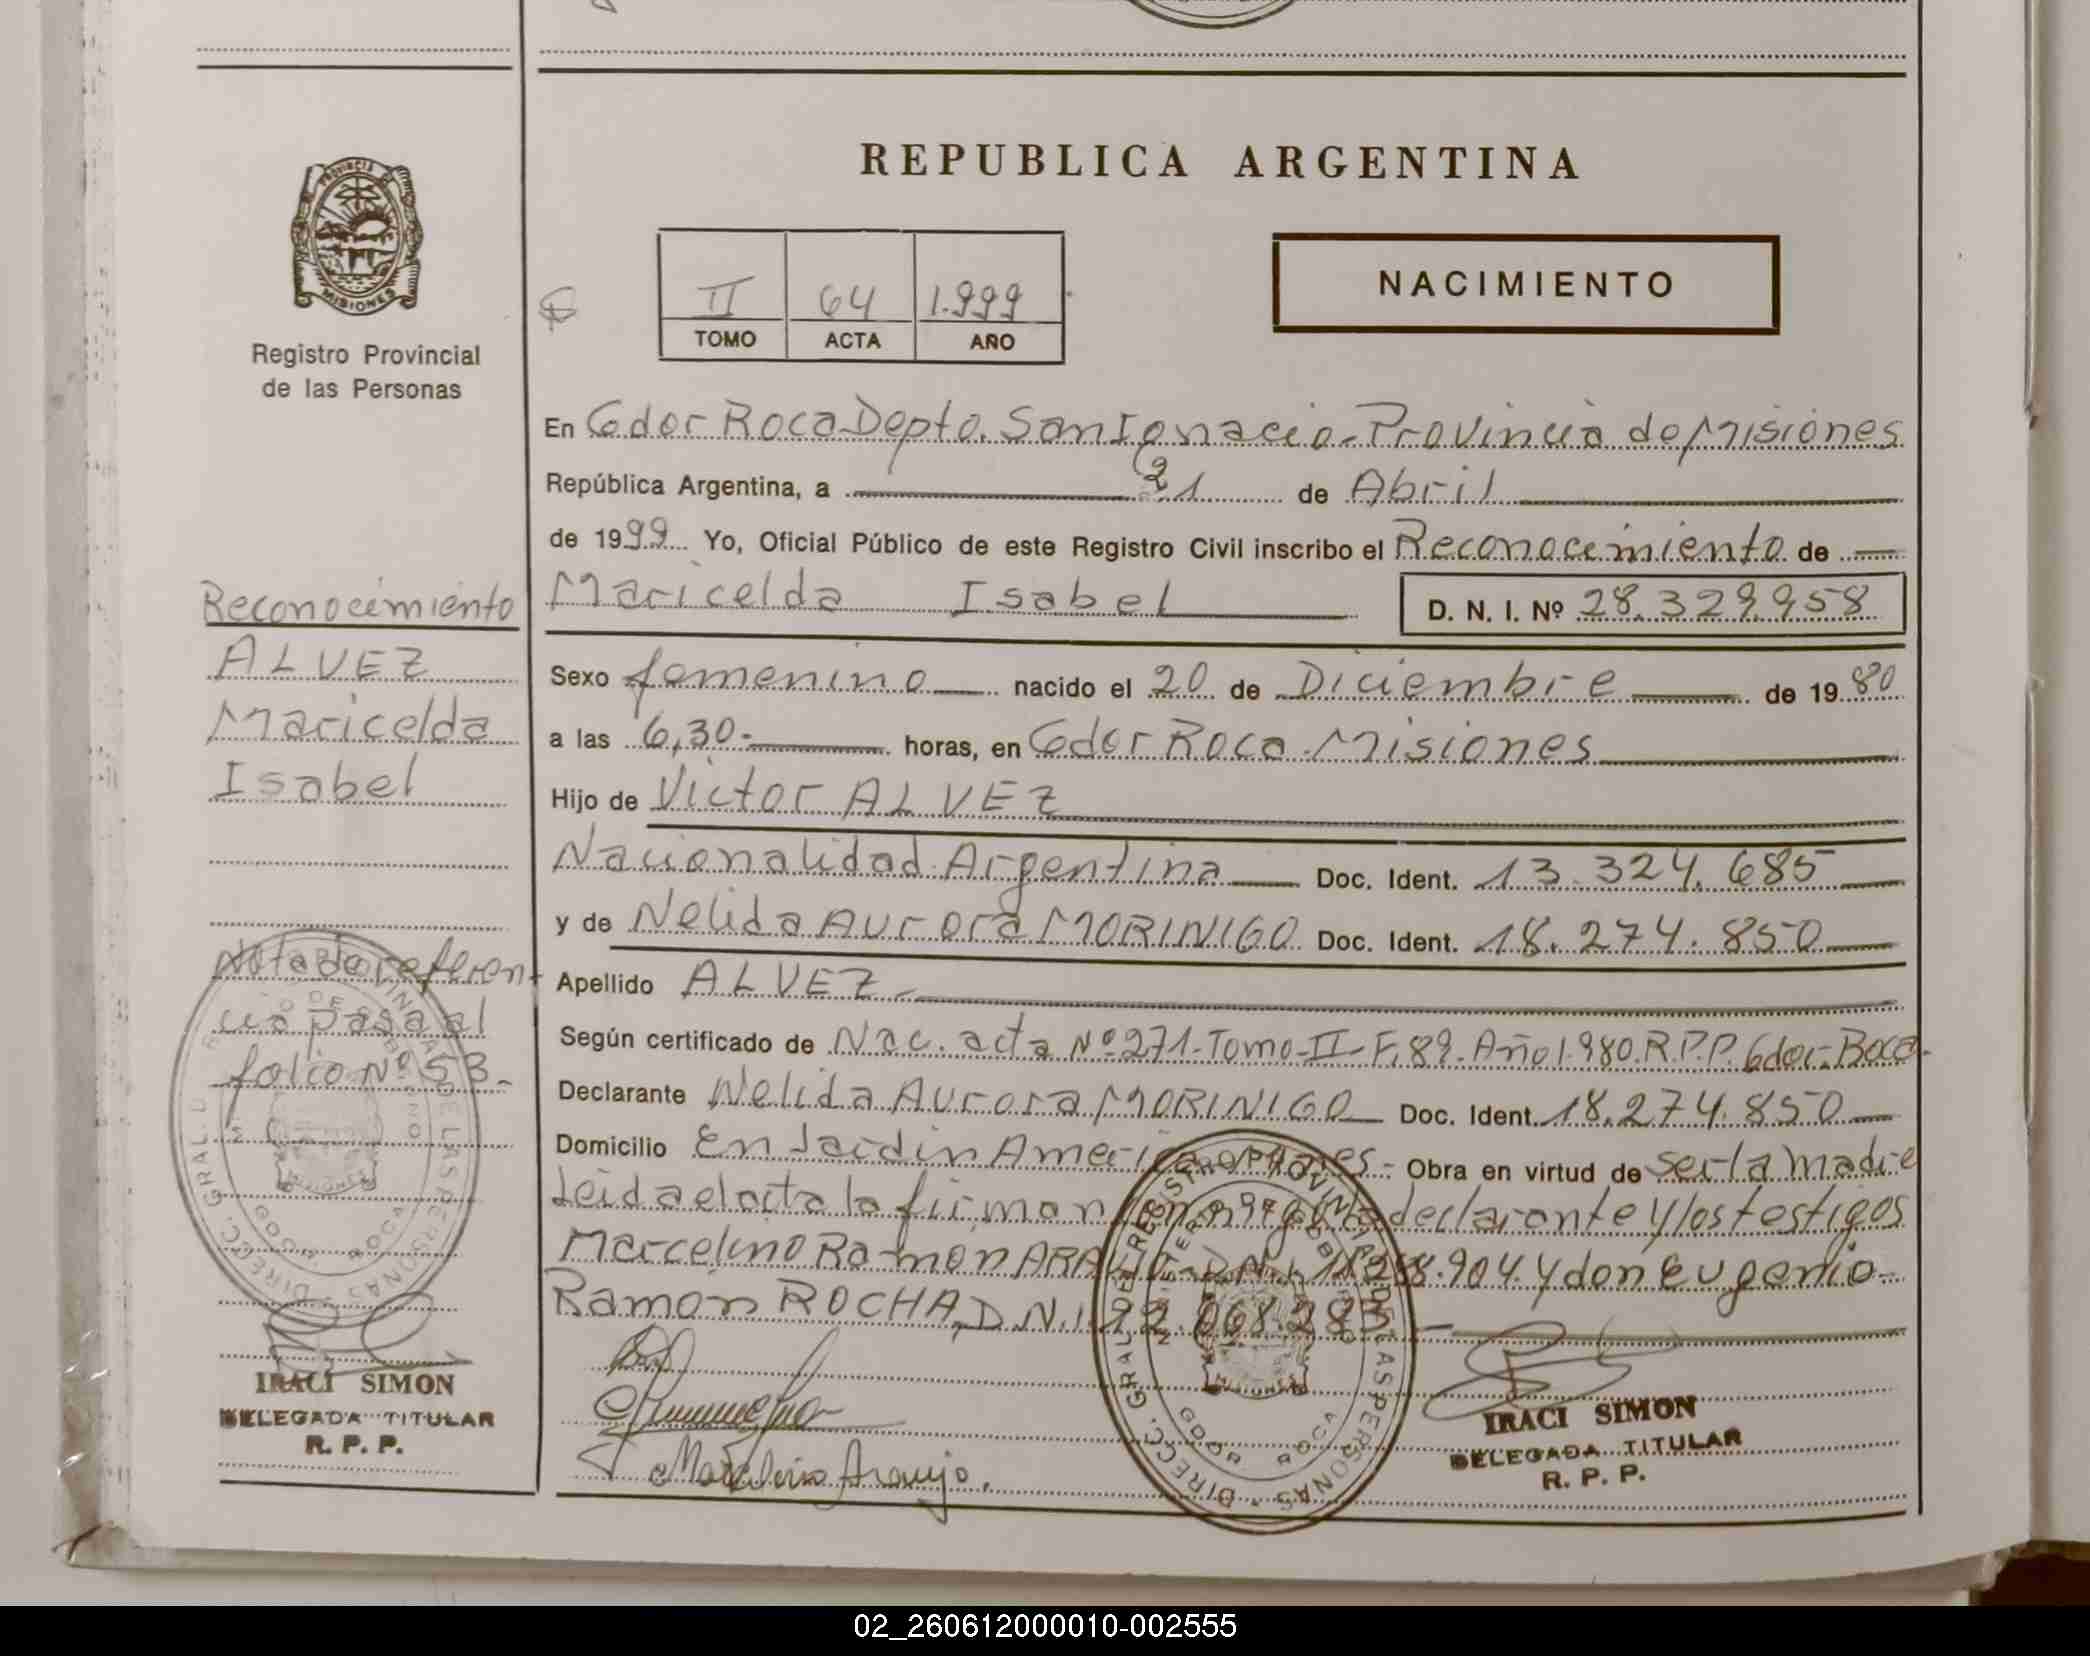 REPUBLICA ARGENTINA
PROVINCIA
MISIONES
Registro Provincial
de las Personas
II 64 1.999
TOMO ACTA AÑO
NACIMIENTO
En Gdor Roca Depto. San Ignacio - Provincia de Misiones
República Argentina, a 21 de Abril
de 1999 Yo, Oficial Público de este Registro Civil inscribo el Reconocimiento de
Maricelda Isabel D. N. I. Nº 28.329.958
Sexo femenino nacido el 20 de Diciembre de 1980
a las 6,30- horas, en Gdor Roca Misiones
Hijo de Victor ALVEZ
Nacionalidad Argentina Doc. Ident. 13.324.685
y de Nelida Aurora MORINIGO Doc. Ident. 18.274.850
Apellido ALVEZ
Según certificado de Nac. acta Nº 271-Tomo-II-F.89-Año 1.980.R.P.P. Gdor-Roca-
Declarante Nelida Aurora MORINIGO Doc. Ident. 18.274.850
Domicilio En Jardin America Obra en virtud de ser la madre
Leida el acta la firman declarante y los testigos
Marcelino Ramon .904. y don Eugenio
Ramón ROCHA, D.N.I.
Marcelino Araujo.
IRACI SIMON
DELEGADA TITULAR
R. P. P.
Reconocimiento
ALVEZ
Maricelda
Isabel
Nota de referen-
cia pasa al
folio Nº 53-
DIRECC. GRAL. DE LAS PERSONAS
MISIONES
GDOR ROCA
IRACI SIMON
DELEGADA TITULAR
R. P. P.
02_260612000010-002555